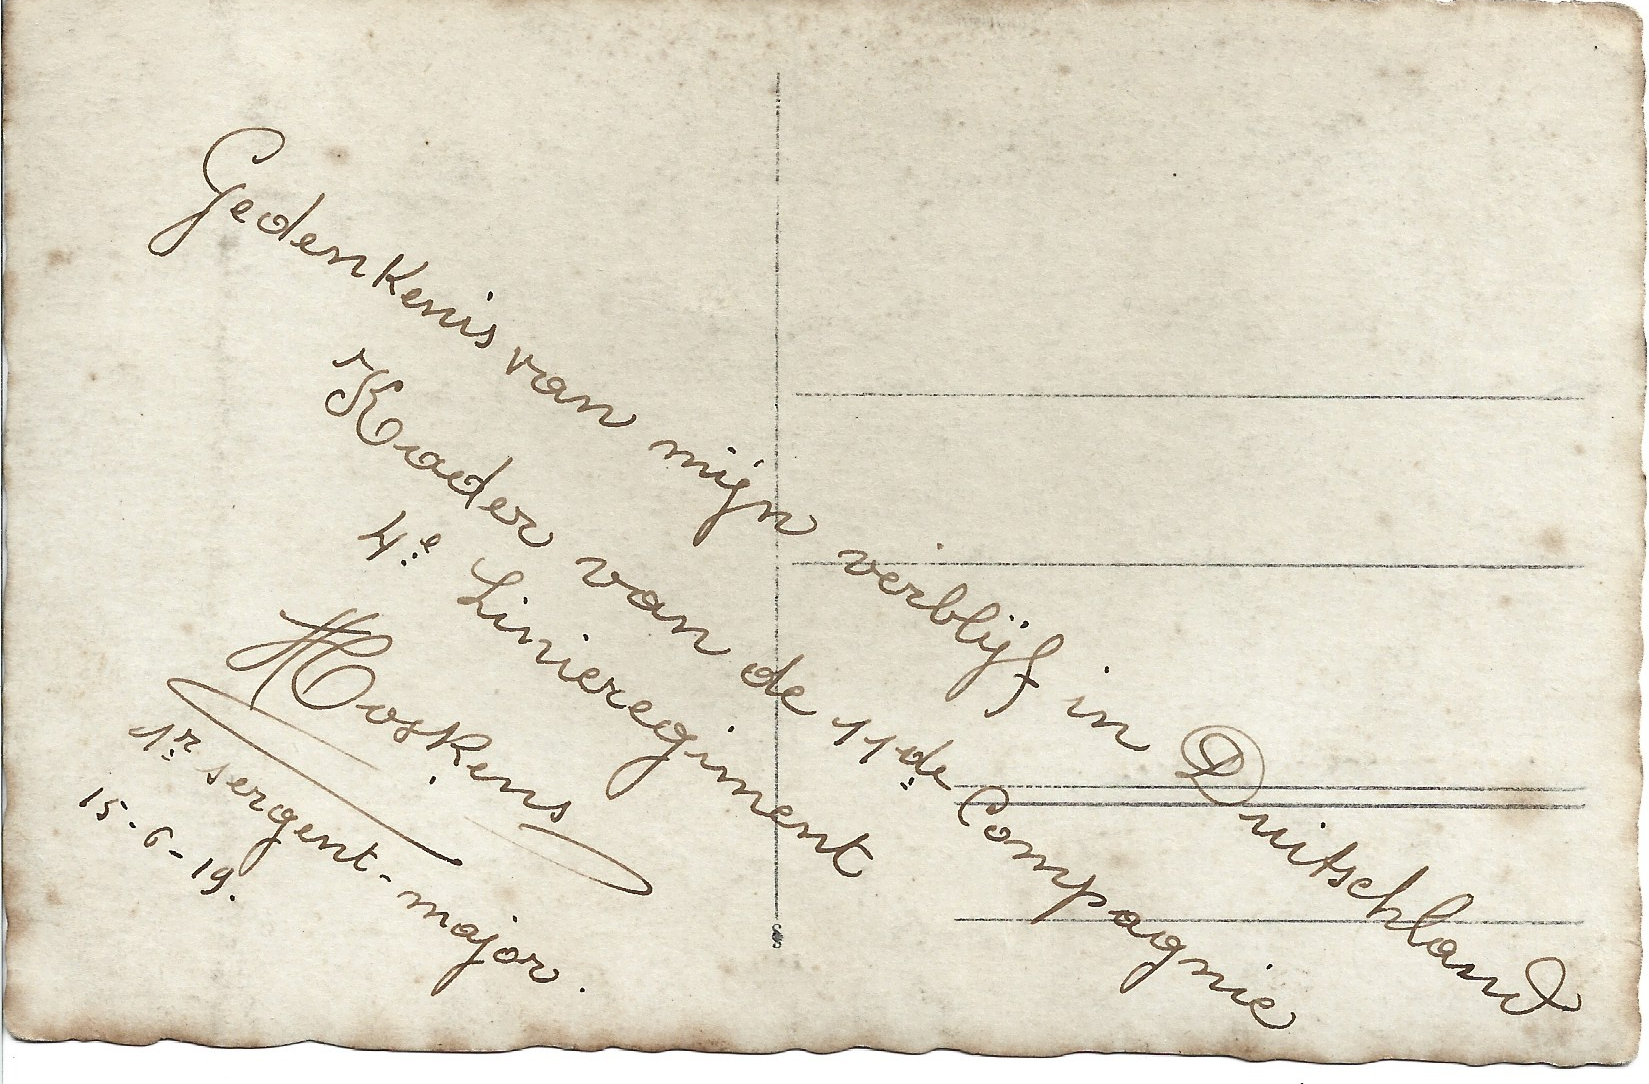 Gedenkenis van mijn verblijf in Duitschland
Kader van de 11de Compagnie
4e Linieregiment
Hoskens
1r sergent-major.
15-6-19.